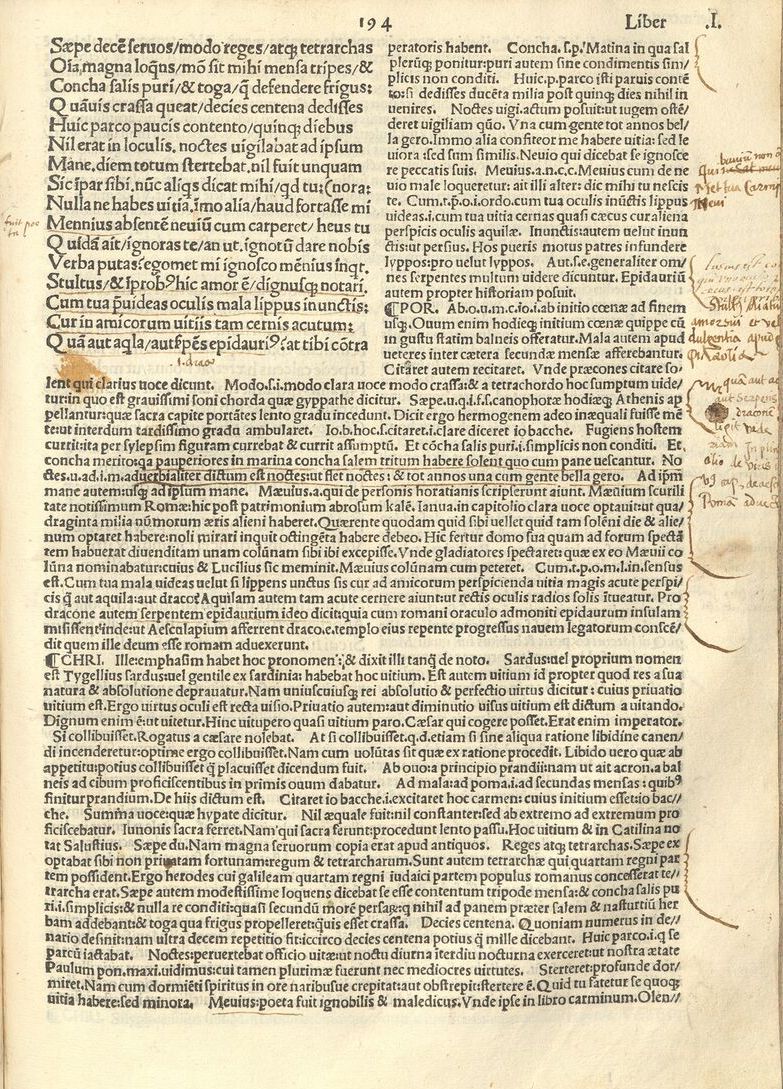 194
Liber .I.
Sæpe decē seruos/modo reges/atq; tetrarchas
Oīa magna loq̄ns/mō sit mihi mensa tripes/&
Concha salis puri/& toga/q̄ defendere frigus:
Quāuis crassa queat/decies centena dedisses
Huic parco paucis contento/quinq; diebus
Nil erat in loculis. noctes uigilabat ad ipsum
Mane. diem totum stertebat. nil fuit unquam
Sic īpar sibi. nūc aliq̄s dicat mihi/qd tu: (nora:
Nulla ne habes uitia. imo alia/haud fortasse mi
Mennius absentē neuiū cum carperet/ heus tu
Quidā ait/ignoras te/an ut ignotū dare nobis
Verba putas: egomet mi ignosco mēnius inqt.
Stultus/& īprobꝰ hic amor ē/dignusq; notari.
Cum tua ꝑuideas oculis mala lippus inunctis:
Cur in amicorum uitiis tam cernis acutum:
Quā aut aqla/aut sꝑēs epidauriꝰ: at tibi cōtra
peratoris habent. Concha.s.p. Matina in qua sal
plerūq; ponitur: puri autem sine condimentis sim/
plicis non conditi. Huic.p. parco isti paruis contē
to: si dedisses ducēta milia post quinq; dies nihil in
uenires. Noctes uigi. actum posuit: ut iugem ostē/
deret uigiliam quo. Vna cum gente tot annos bel/
la gero. Immo alia confiteor me habere uitia: sed le
uiora: sed sum similis. Neuio qui dicebat se ignosce
re peccatis suis. Meuius.a.n.c.c. Meuium cum de ne
uio male loqueretur: ait illi alter: dic mihi tu nescis
te. Cum.t.p.o.i. ordo. cum tua oculis inūctis lippus
uideas.i. cum tua uitia cernas quasi cæcus cur aliena
perspicis oculis aquilæ. Inunctis: autem uelut inun
ctis: ut persius. Hos pueris motus patres infundere
lyppos: pro uelut lyppos. Aut.s.e. generaliter om/
nes serpentes multum uidere dicuntur. Epidauriū
autem propter historiam posuit.
¶POR. Ab.o.u.m.c.io.i. ab initio cœnæ ad finem
usq;. Ouum enim hodieq; initium cœnæ quippe cū
in gustu statim balneis offeratur. Mala autem apud
ueteres inter cætera secundæ mensæ afferebantur.
Citaret autem recitaret. Vnde præcones citare so/
lent qui clarius uoce dicunt. Modo.s.i. modo clara uoce modo crassa: & a tetrachordo hoc sumptum uide/
tur: in quo est grauissimi soni chorda quæ gyppathe dicitur. Sæpe.u.q.i.f.s. canophoræ hodieq; Athenis ap
pellantur: quæ sacra capite portātes lento gradu incedunt. Dicit ergo hermogenem adeo inæquali fuisse mē
te: ut interdum tardissimo gradu ambularet. Io.b.hoc.s. citaret.i. clare diceret io bacche. Fugiens hostem
currit: ita per sylepsim figuram currebat & currit assumptū. Et cōcha salis puri.i. simplicis non conditi. Et.
concha merito: qa pauperiores in marina concha salem tritum habere solent quo cum pane uescantur. No
ctes.u.ad.i.m. aduerbialiter dictum est noctes: ut flet noctes: & tot annos una cum gente bella gero. Ad ipm̄
mane autem: usq; ad ipsum mane. Mæuius.a. qui de personis horatianis scripserunt aiunt. Mæuium scurili
tate notissimum Romæ: hic post patrimonium abrosum kalē. Ianua. in capitolio clara uoce optauit: ut qua/
draginta milia nūmorum æris alieni haberet. Quærente quodam quid sibi uellet quid tam solēni die & alie/
num optaret habere: noli mirari inquit octingēta habere debeo. Hic fertur domo sua quam ad forum spectā
tem habuerat diuenditam unam colūnam sibi ibi excepisse. Vnde gladiatores spectaret: quæ ex eo Mæuii co
lūna nominabatur: cuius & Lucilius sic meminit. Mæuius colūnam cum peteret. Cum.t.p.o.m.l.in. sensus
est. Cum tua mala uideas uelut si lippens unctus sis cur ad amicorum perspicienda uitia magis acute perspi/
cis q̄ aut aquila: aut draco: Aquilam autem tam acute cernere aiunt: ut rectis oculis radios solis ītueatur. Pro
dracone autem serpentem epidaurium ideo dicit: quia cum romani oraculo admoniti epidaurum insulam
misissent: inde: ut Aesculapium afferrent draco.e. templo eius repente progressus nauem legatorum conscē/
dit quem ille deum esse romam aduexerunt.
¶CHRI. Ille: emphasim habet hoc pronomen: & dixit illi tanq̄ de noto. Sardus: uel proprium nomen
est Tygellius sardus: uel gentile ex sardinia: habebat hoc uitium. Est autem uitium id propter quod res a sua
natura & absolutione deprauatur. Nam uniuscuiusq; rei absolutio & perfectio uirtus dicitur: cuius priuatio
uitium est. Ergo uirtus oculi est recta uisio. Priuatio autem: aut diminutio uisus uitium est dictum a uitando.
Dignum enim ē: ut uitetur. Hinc uitupero quasi uitium paro. Cæsar qui cogere posset. Erat enim imperator.
Si collibuisset. Rogatus a cæsare nolebat. At si collibuisset. q.d. etiam si sine aliqua ratione libidine canen/
di incenderetur: optime ergo collibuisset. Nam cum uolūtas sit quæ ex ratione procedit. Libido uero quæ ab
appetitu: potius collibuisset q̄ placuisset dicendum fuit. Ab ouo: a principio prandii: nam ut ait acron. a bal
neis ad cibum proficiscentibus in primis ouum dabatur. Ad mala: ad poma.i. ad secundas mensas: quibꝰ
finitur prandium. De hiis dictum est. Citaret io bacche.i. excitaret hoc carmen: cuius initium esset: io bac//
che. Summa uoce: quæ hypate dicitur. Nil æquale fuit: nil constanter: sed ab extremo ad extremum pro
ficiscebatur. Iunonis sacra ferret. Nam qui sacra ferunt: procedunt lento passu. Hoc uitium & in Catilina no
tat Salustius. Sæpe du. Nam magna seruorum copia erat apud antiquos. Reges atq; tetrarchas. Sæpe ex
optabat sibi non priuatam fortunam: regum & tetrarcharum. Sunt autem tetrarchæ qui quartam regni par
tem possident. Ergo herodes cui galileam quartam regni iudaici partem populus romanus concesserat te//
trarcha erat. Sæpe autem modestissime loquens dicebat se esse contentum tripode mensa: & concha salis pu
ri.i. simplicis: & nulla re conditi: quasi secundū morē persaꝝ: q nihil ad panem præter salem & nasturtiū her
bam addebant: & toga qua frigus propelleret: quis esset crassa. Decies centena. Quoniam numerus in de//
nario desinit: nam ultra decem repetitio fit: iccirco decies centena potius q̄ mille dicebant. Huic parco.i. q se
parcū iactabat. Noctes: peruertebat officio uitæ: ut noctu diurna iterdiu nocturna exerceret: ut nostra ætate
Paulum pon. maxi. uidimus: cui tamen plurimæ fuerunt nec mediocres uirtutes. Sterteret: profunde dor/
miret. Nam cum dormiēti spiritus in ore naribusue crepitat: aut obstrepit: stertere ē. Quid tu fatetur se quoq;
uitia habere: sed minora. Meuius: poeta fuit ignobilis & maledicus. Vnde ipse in libro carminum. Olen//